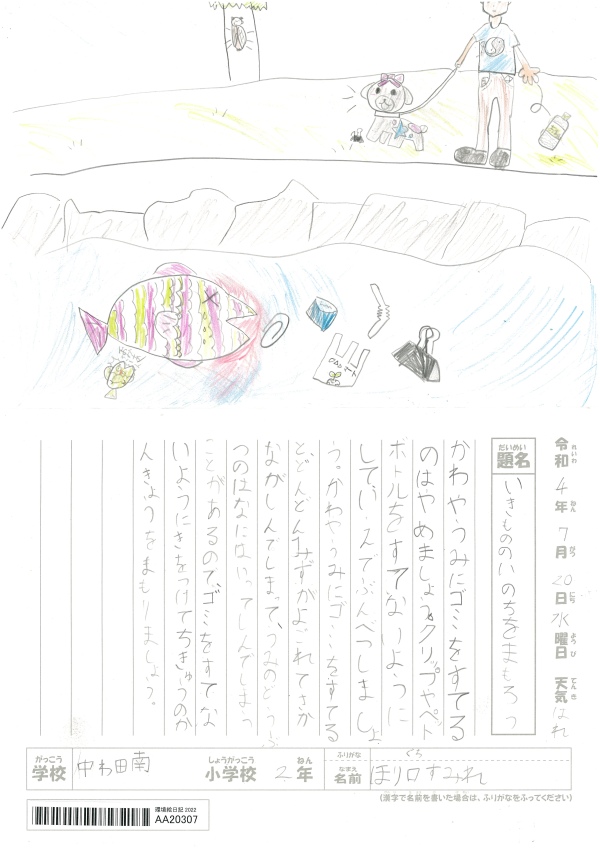 令和4年7月20日水曜日 天気はれ
れいわ ねん がつ にち ようび てんき
題名 いきもののいのちをまもろっ
だいめい
かわやうみにゴミをすてる
のはやめましょう。クリップやペット
ボトルをすてないように
して、いえでぶんべつしましょ
う。かわやうみにゴミをすてる
と、どんどんみずがよごれてさか
ながしんでしまって、うみのどうぶ
つのはなにはいってしんでしまう
ことがあるので、ゴミをすてな
いようにきをつけてちきゅうのか
んきょうをまもりましょう。
がっこう しょうがっこう ねん ふりがな ぐち
学校 中わ田南 小学校 2年 なまえ 名前 ほり口すみれ
(漢字で名前を書いた場合は、ふりがなをふってください)
環境絵日記 2022
AA20307